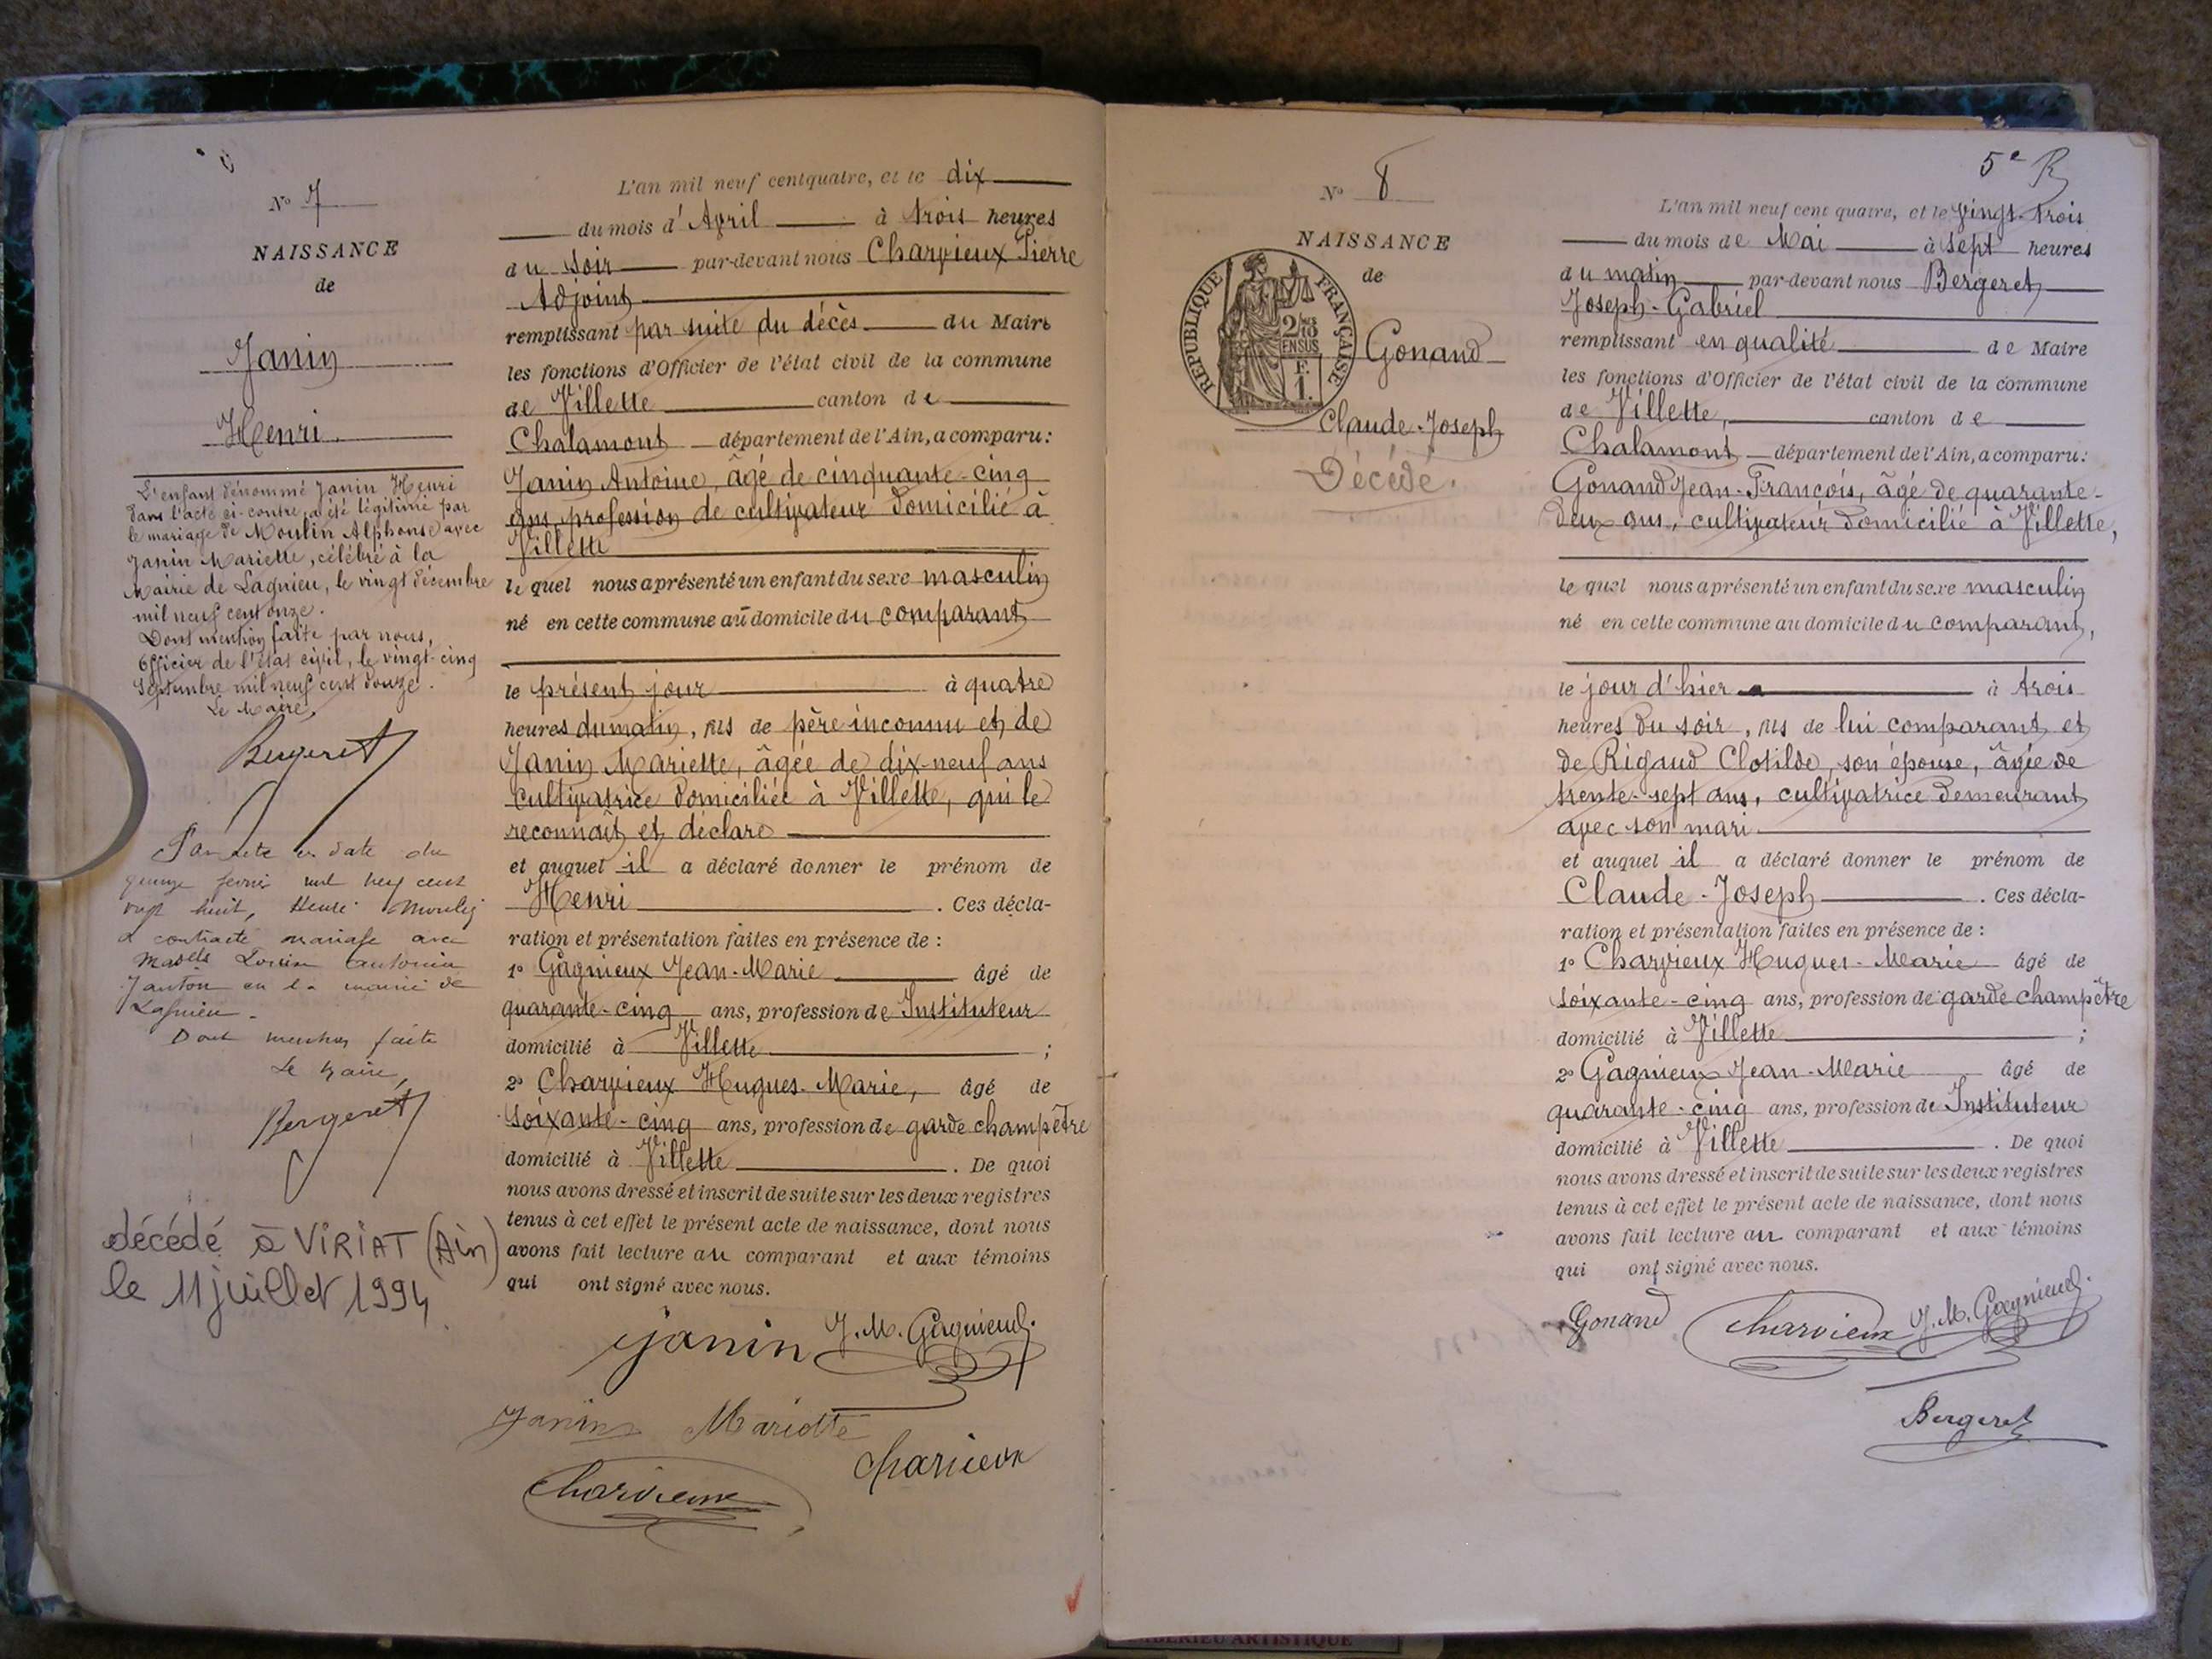 N° 7
NAISSANCE
de
Janin
Henri
L'enfant dénommé Janin Henri
dans l'acte ci-contre, a été légitimé par
le mariage de Moulin Alphonse avec
Janin Mariette, célébré à la
Mairie de Lagnieu, le vingt décembre
mil neuf cent onze.
Dont mention faite par nous,
Officier de l'état civil, le vingt-cinq
Septembre mil neuf cent douze.
Le Maire,
Bergeret
Par acte en date du
quinze février mil neuf cent
vingt huit, Henri Moulin
a contracté mariage avec
Louise Antonia
Janton en la mairie de
Lagnieu.
Dont mention faite
Le Maire,
Bergeret
décédé à VIRIAT (Ain)
le 11 juillet 1994
L'an mil neuf cent quatre, et le dix
du mois d'Avril à trois heures
du soir par-devant nous Charvieux Pierre
Adjoint
remplissant par suite du décès du Maire
les fonctions d'Officier de l'état civil de la commune
de Villette canton de
Chalamont département de l'Ain, a comparu:
Janin Antoine, âgé de cinquante-cinq
ans, profession de cultivateur domicilié à
Villette
lequel nous a présenté un enfant du sexe masculin
né en cette commune au domicile du comparant
le présent jour à quatre
heures du matin, fils de père inconnu et de
Janin Mariette, âgée de dix-neuf ans
cultivatrice domiciliée à Villette, qui le
reconnaît et déclare
et auquel il a déclaré donner le prénom de
Henri. Ces décla-
ration et présentation faites en présence de:
1° Gagnieux Jean-Marie âgé de
quarante-cinq ans, profession de Instituteur
domicilié à Villette;
2° Charvieux Hugues-Marie, âgé de
soixante-cinq ans, profession de garde champêtre
domicilié à Villette. De quoi
nous avons dressé et inscrit de suite sur les deux registres
tenus à cet effet le présent acte de naissance, dont nous
avons fait lecture au comparant et aux témoins
qui ont signé avec nous.
Janin J. M. Gagnieux
Janin Mariette
Charvieux
Charvieux
5e R
N° 8
NAISSANCE
de
RÉPUBLIQUE FRANÇAISE
2/10 EN SUS
F. 1.
Gonand
Claude-Joseph
Décédé.
L'an mil neuf cent quatre, et le vingt-trois
du mois de Mai à sept heures
du matin par-devant nous Bergeret
Joseph-Gabriel
remplissant en qualité de Maire
les fonctions d'Officier de l'état civil de la commune
de Villette, canton de
Chalamont département de l'Ain, a comparu:
Gonand Jean-François, âgé de quarante-
deux ans, cultivateur domicilié à Villette,
lequel nous a présenté un enfant du sexe masculin
né en cette commune au domicile du comparant,
le jour d'hier à trois
heures du soir, fils de lui comparant et
de Rigaud Clotilde, son épouse, âgée de
trente-sept ans, cultivatrice demeurant
avec son mari
et auquel il a déclaré donner le prénom de
Claude-Joseph. Ces décla-
ration et présentation faites en présence de:
1° Charvieux Hugues-Marie âgé de
soixante-cinq ans, profession de garde champêtre
domicilié à Villette;
2° Gagnieux Jean-Marie âgé de
quarante-cinq ans, profession de Instituteur
domicilié à Villette. De quoi
nous avons dressé et inscrit de suite sur les deux registres
tenus à cet effet le présent acte de naissance, dont nous
avons fait lecture au comparant et aux témoins
qui ont signé avec nous.
Gonand Charvieux J. M. Gagnieux
Bergeret
ARTISTIQUE